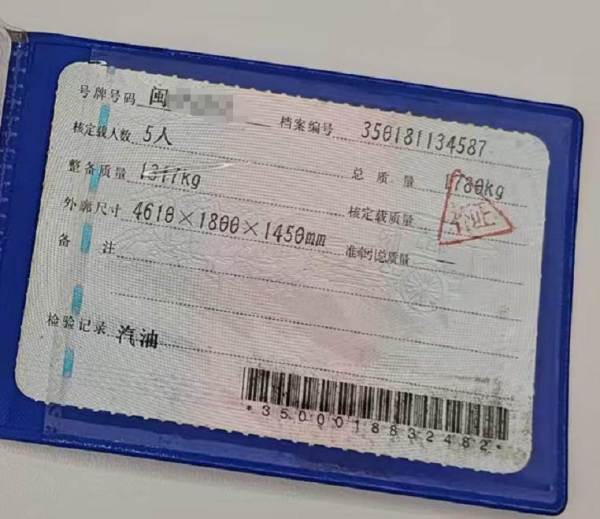 号牌号码 闽
档案编号 350181134587
核定载人数 5人
总质量 1780kg
整备质量 1317kg
核定载质量
外廓尺寸 4610×1800×1450mm
准牵引总质量 —
备注
检验记录 汽油
*3500018832482*